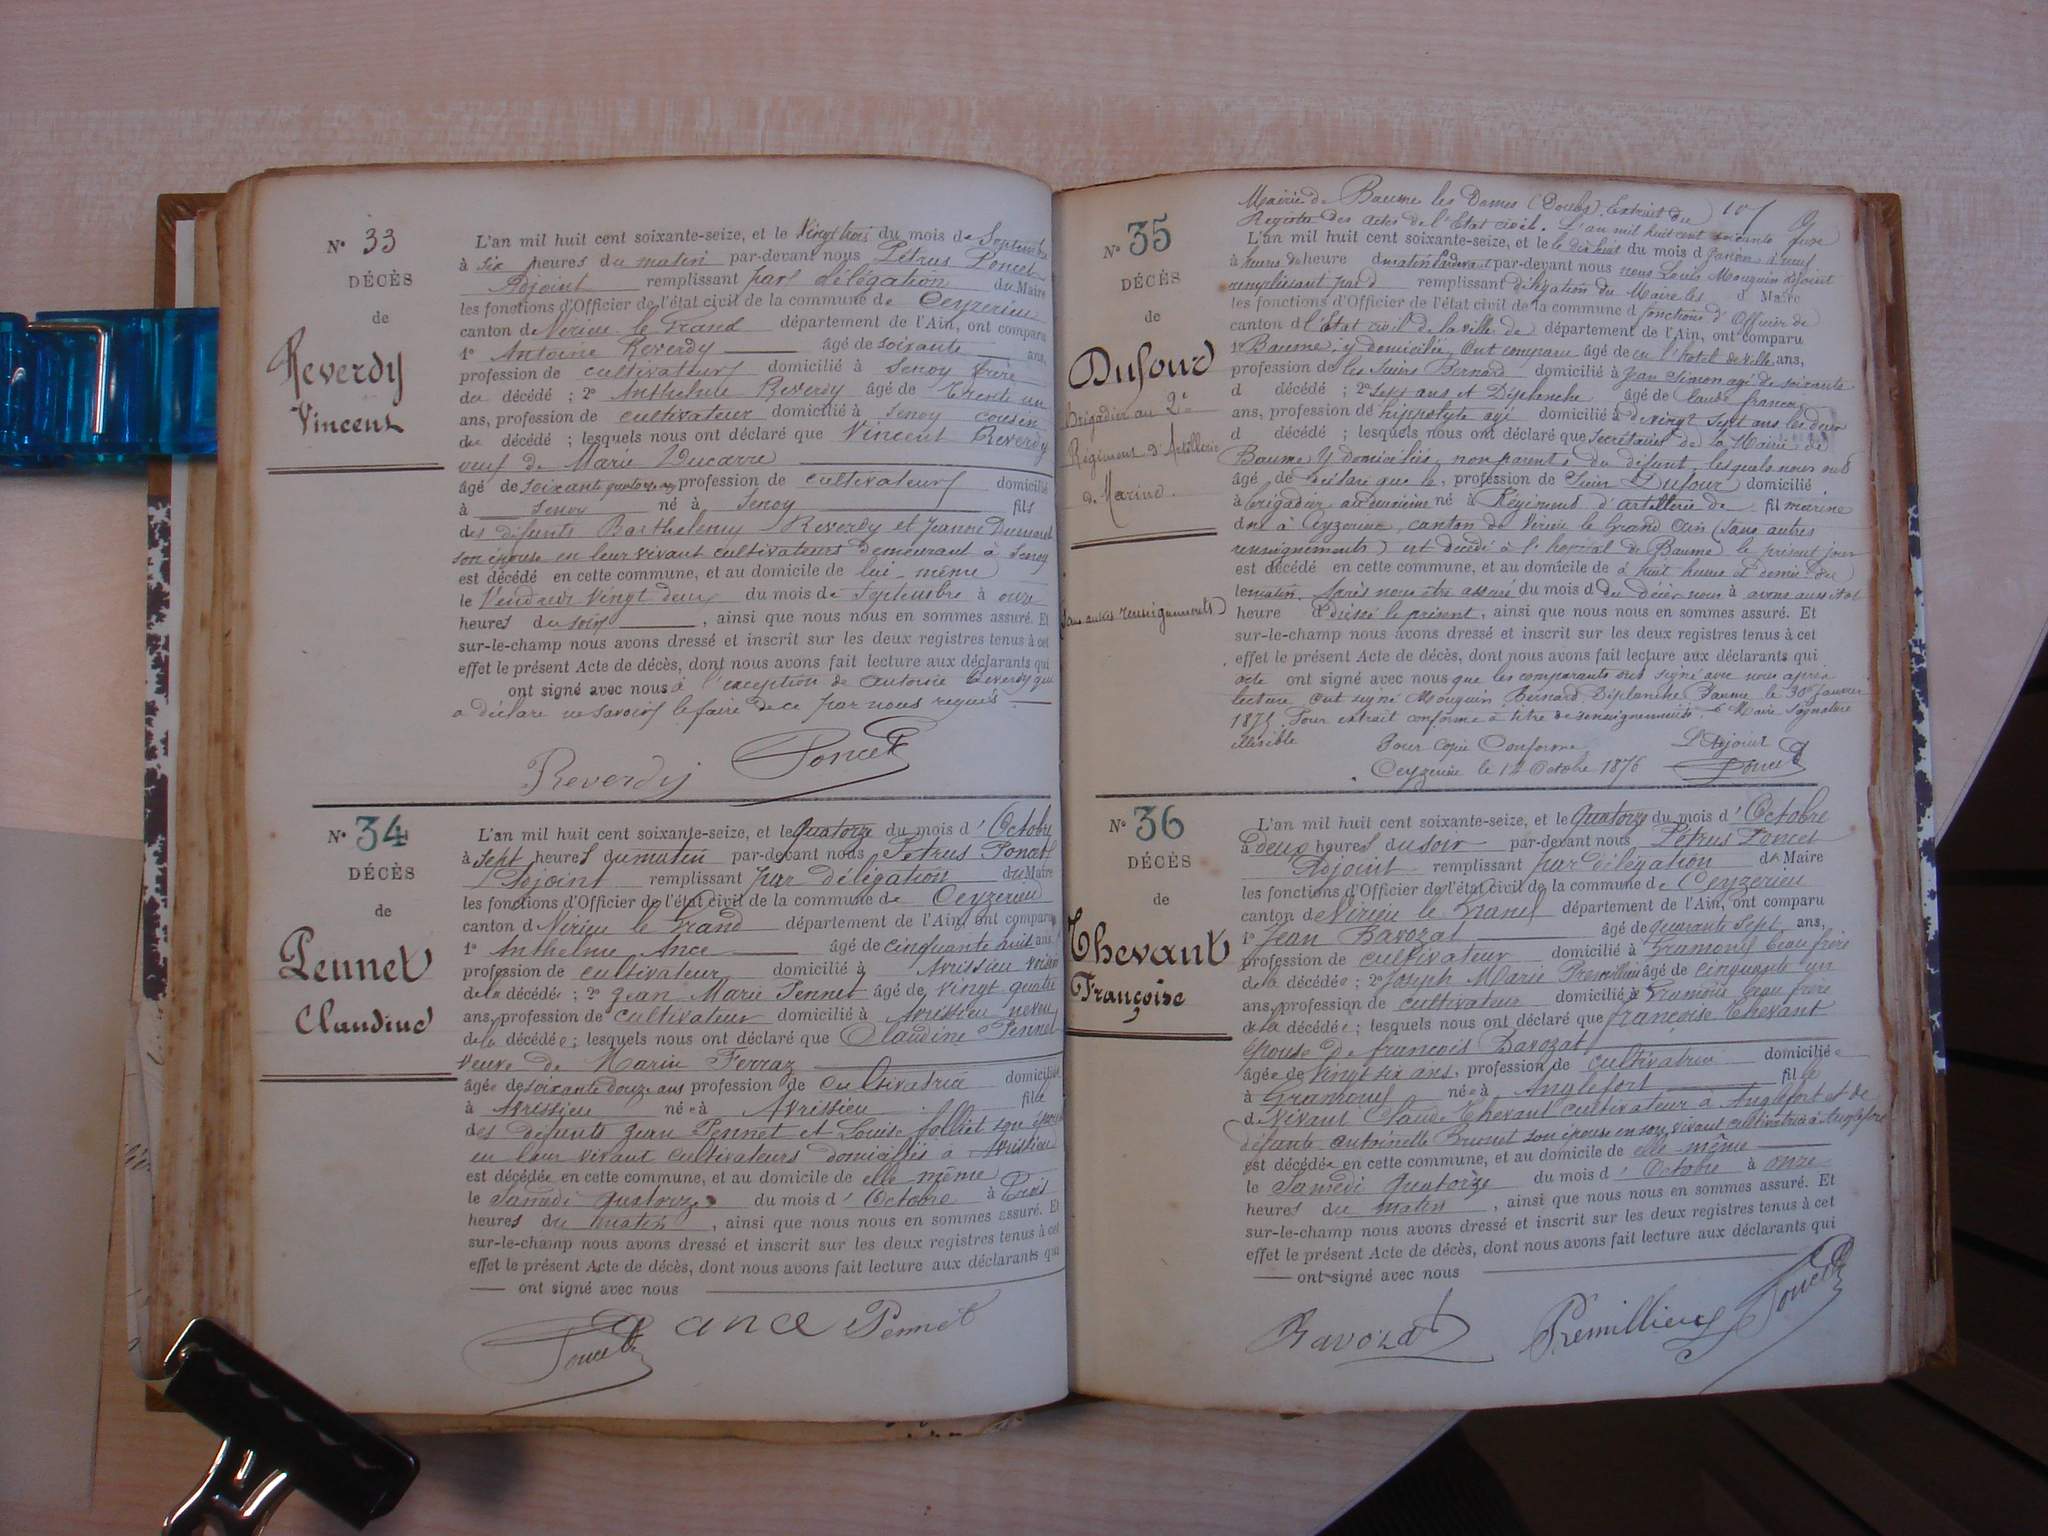 N° 33
DÉCÈS
de
Reverdy
Vincent
L'an mil huit cent soixante-seize, et le Vingt trois du mois de Septembre
à six heures du matin par-devant nous Pétrus Poncet
Adjoint remplissant par délégation du Maire
les fonctions d'Officier de l'état civil de la commune de Ceyzerieu
canton de Virieu le Grand département de l'Ain, ont comparu
1° Antoine Reverdy âgé de soixante ans,
profession de cultivateur domicilié à Senoy frère
du décédé ; 2° Anthelme Reverdy âgé de Trente un
ans, profession de cultivateur domicilié à Senoy cousin
du décédé ; lesquels nous ont déclaré que Vincent Reverdy
veuf de Marie Ducarre
âgé de soixante quatorze ans profession de cultivateur domicilié
à Senoy né à Senoy fils
des défunts Barthelemy Reverdy et Jeanne
son épouse en leur vivant cultivateurs demeurant à Senoy
est décédé en cette commune, et au domicile de lui-même
le Vendredi Vingt deux du mois de Septembre à onze
heures du soir , ainsi que nous nous en sommes assuré. Et
sur-le-champ nous avons dressé et inscrit sur les deux registres tenus à cet
effet le présent Acte de décès, dont nous avons fait lecture aux déclarants qui
ont signé avec nous à l'exception de Antoine Reverdy qui
a déclaré ne savoir le faire de ce par nous requis
Reverdy Poncet
N° 34
DÉCÈS
de
Pennet
Claudine
L'an mil huit cent soixante-seize, et le Quatorze du mois d'Octobre
à sept heures du matin par-devant nous Pétrus Poncet
Adjoint remplissant par délégation du Maire
les fonctions d'Officier de l'état civil de la commune de Ceyzerieu
canton de Virieu le Grand département de l'Ain, ont comparu
1° Anthelme Ance âgé de cinquante huit ans
profession de cultivateur domicilié à Avrissieu voisin
de la décédée ; 2° Jean Marie Pennet âgé de vingt quatre
ans, profession de cultivateur domicilié à Avrissieu neveu
de la décédée ; lesquels nous ont déclaré que Claudine Pennet
veuve de Marin Ferraz
âgée de soixante douze ans profession de cultivatrice domiciliée
à Avrissieu née à Avrissieu fille
des défunts Jean Pennet et Louise Jolliet son épouse
en leur vivant cultivateurs domiciliés à Avrissieu
est décédée en cette commune, et au domicile de elle même
le Samedi quatorze du mois d'Octobre à Trois
heures du matin , ainsi que nous nous en sommes assuré. Et
sur-le-champ nous avons dressé et inscrit sur les deux registres tenus à cet
effet le présent Acte de décès, dont nous avons fait lecture aux déclarants qui
ont signé avec nous
Poncet ance Pennet
N° 35
DÉCÈS
de
Dufour
Brigadier au 2e
Régiment d'Artillerie
de Marine.
(sans autres renseignements)
Mairie de Baume les Dames (Doubs). Extrait du
Registre des actes de l'Etat civil. L'an mil huit cent soixante
L'an mil huit cent soixante-seize, et le le dix huit du mois d janvier à neuf
à heures du heure d matin Pardevant par-devant nous nous Louis Mouguin adjoint
remplissant par d remplissant délégation du Maire les d Maire
les fonctions d'Officier de l'état civil de la commune d fonctions d'Officier de
canton d l'Etat civil de la ville de département de l'Ain, ont comparu
1° Baume, y domicilié, Ont comparu âgé de en l'hotel de ville ans,
profession de les sieurs Bernard domicilié à Jean Simon agé de soixante
d décédé ; 2° sept ans et Diplanche âgé de Claude francois
ans, profession de hippolyte agé domicilié à de vingt sept ans les deux
d décédé ; lesquels nous ont déclaré que Secrétaires de la Mairie de
Baume Y domiciliés, non parents du défunt, lesquels nous ont
âgé de déclaré que le , profession de Sieur Dufour domicilié
à brigadier au deuxième né à Régiment d'artillerie de fil marine
dne à Ceyzerieu, canton de Virieu le Grand Ain (sans autres
renseignements) est décédé à l'hopital de Baume le présent jour
est décédé en cette commune, et au domicile de à huit heures et demie du
le matin. Après nous être assuré du mois d du décès nous à avons aussitot
heure d dressé le présent, ainsi que nous nous en sommes assuré. Et
sur-le-champ nous avons dressé et inscrit sur les deux registres tenus à cet
effet le présent Acte de décès, dont nous avons fait lecture aux déclarants qui
acte ont signé avec nous que les comparants ont signé avec nous après
lecture. Ont signé Mouguin, Bernard, Diplanche. Baume le 30 Janvier
1871. Pour extrait conforme à titre de renseignements. Le Maire Signature
illisible Pour Copie Conforme L'Adjoint
Ceyzerieu le 12 Octobre 1876 Poncet
N° 36
DÉCÈS
de
Thevant
Françoise
L'an mil huit cent soixante-seize, et le Quatorze du mois d'Octobre
à deux heures du soir par-devant nous Pétrus Poncet
Adjoint remplissant par délégation du Maire
les fonctions d'Officier de l'état civil de la commune de Ceyzerieu
canton de Virieu le Grand département de l'Ain, ont comparu
1° Jean Bavozat âgé de quarante sept ans,
profession de cultivateur domicilié à Gramond beau frère
de la décédée ; 2° Joseph Marie Premillieu âgé de cinquante un
ans, profession de cultivateur domicilié à beau frère
de la décédée ; lesquels nous ont déclaré que françoise Thevant
épouse de francois Bavozat
âgée de vingt six ans, profession de cultivatrice domiciliée
à née à Anglefort fille
de Vivant Claude Thevant cultivateur à Anglefort et de
défunte antoinette Brunet son épouse en son vivant cultivatrice à Anglefort
est décédée en cette commune, et au domicile de elle même
le Samedi quatorze du mois d'Octobre à onze
heures du matin , ainsi que nous nous en sommes assuré. Et
sur-le-champ nous avons dressé et inscrit sur les deux registres tenus à cet
effet le présent Acte de décès, dont nous avons fait lecture aux déclarants qui
ont signé avec nous
Bavozat Premillieu Poncet